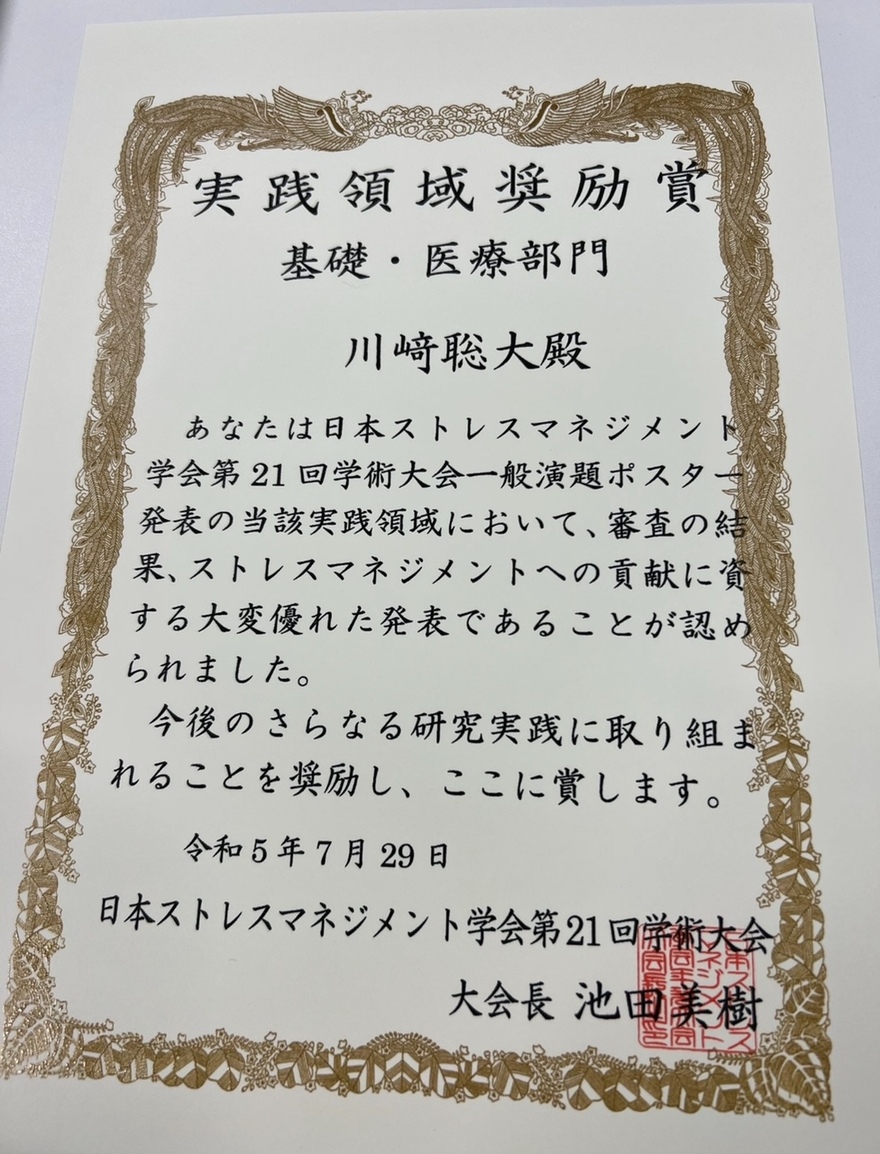 実践領域奨励賞
基礎・医療部門
川﨑聡大殿
あなたは日本ストレスマネジメント
学会第21回学術大会一般演題ポスター
発表の当該実践領域において、審査の結
果、ストレスマネジメントへの貢献に資
する大変優れた発表であることが認め
られました。
今後のさらなる研究実践に取り組ま
れることを奨励し、ここに賞します。
令和5年7月29日
日本ストレスマネジメント学会第21回学術大会
大会長 池田美樹